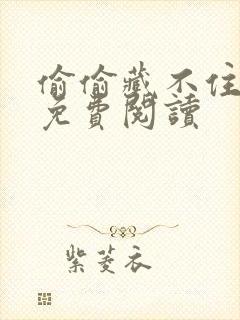 偷偷藏不住
免費閱讀
紫菱衣